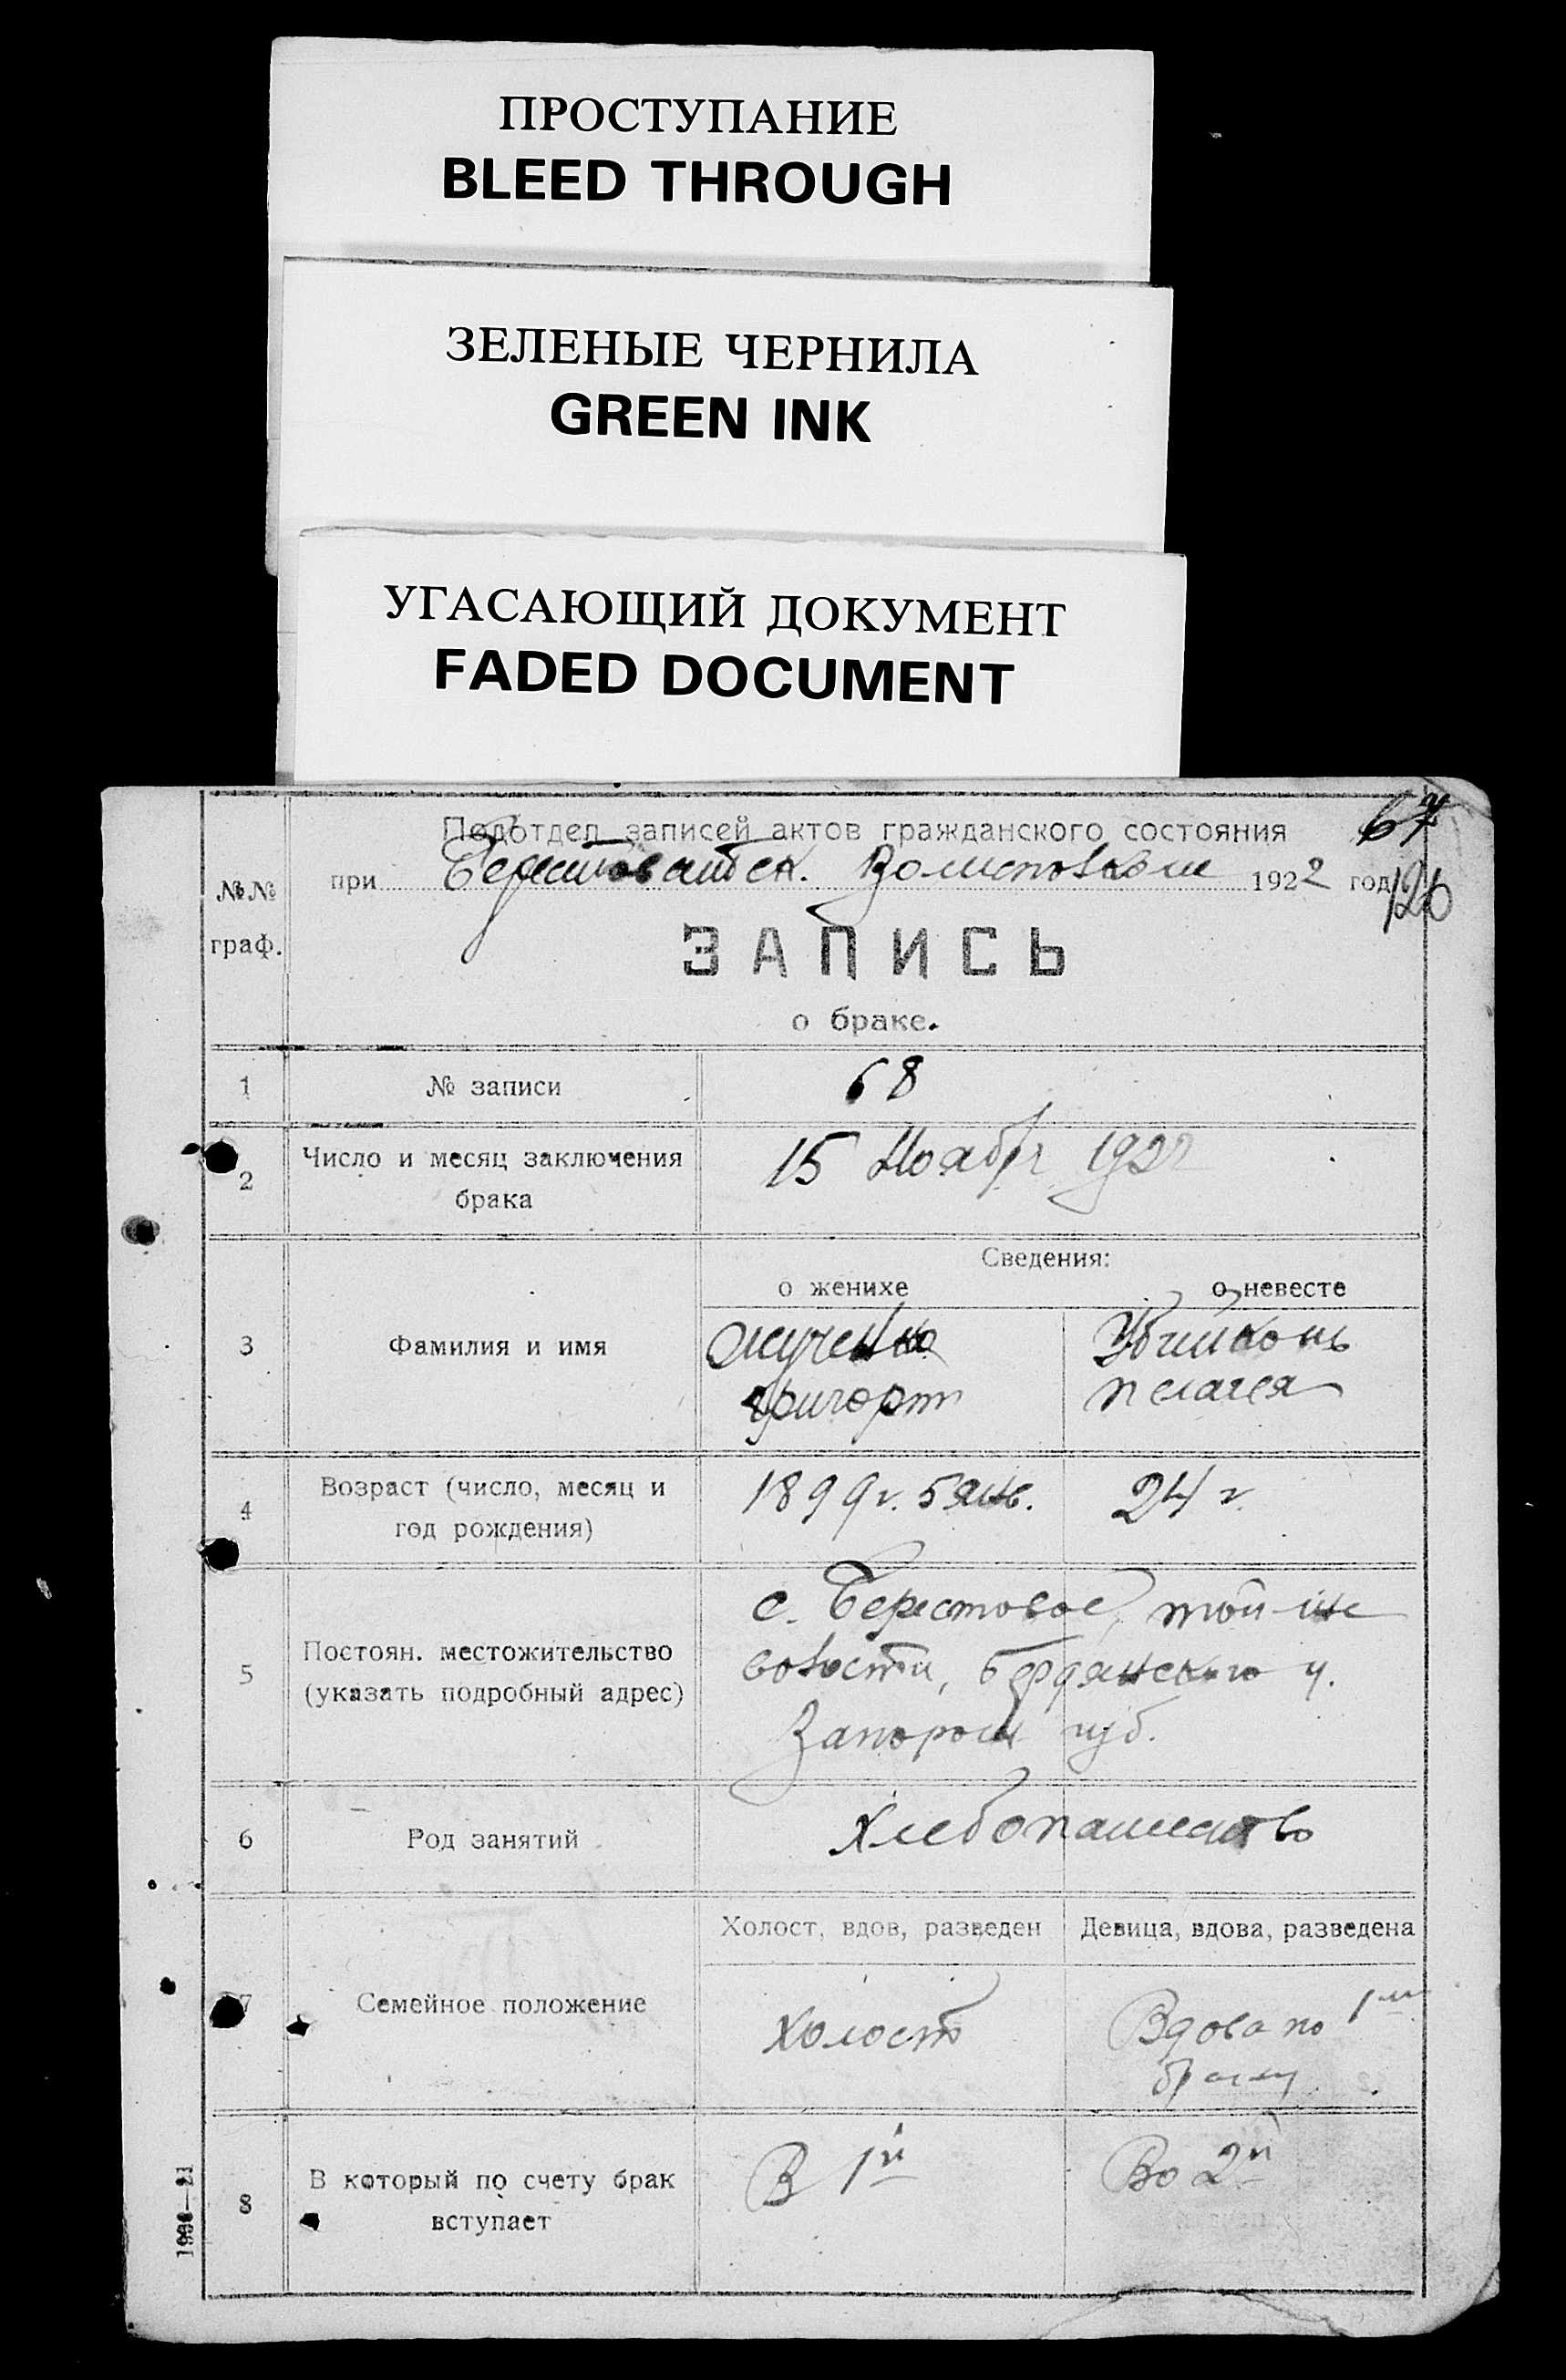 ПРОСТУПАНИЕ
BLEED THROUGH
ЗЕЛЕНЫЕ ЧЕРНИЛА
GREEN INK
УГАСАЮЩИЙ ДОКУМЕНТ
FADED DOCUMENT
67
Подотдел записей актов гражданского состояния
№№ граф.
при 1922 год
126
ЗАПИСЬ
о браке.
1 № записи 68
2 Число и месяц заключения брака 15 1922
Сведения:
о женихе о невесте
3 Фамилия и имя
Убийконь
Пелагея
4 Возраст (число, месяц и год рождения) 1899 г. 5 янв. 24 г.
5 Постоян. местожительство (указать подробный адрес)
с. Берестовое, той-же
Бердянского у.
Запорож губ.
6 Род занятий Хлебопашество
Холост, вдов, разведен Девица, вдова, разведена
7 Семейное положение Холост Вдова по 1му
браку
8 В который по счету брак вступает В 1й Во 2й